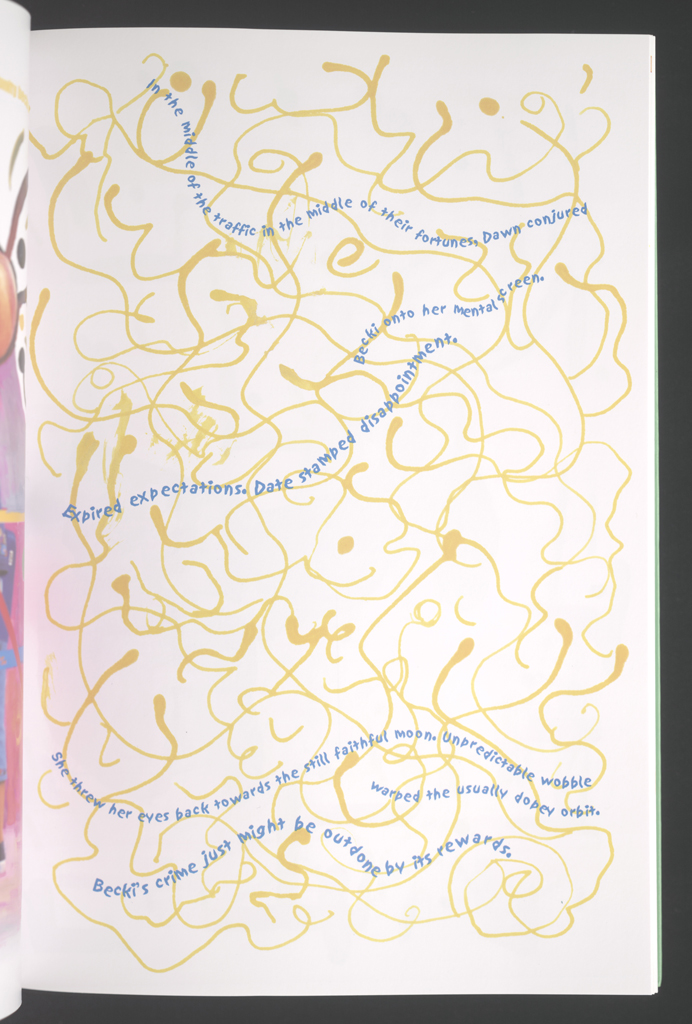 In the middle of the traffic in the middle of their fortunes, Dawn conjured
Becki onto her mental screen.
Expired expectations. Date stamped disappointment.
She threw her eyes back towards the still faithful moon. Unpredictable wobble
warped the usually dopey orbit.
Becki's crime just might be outdone by its rewards.